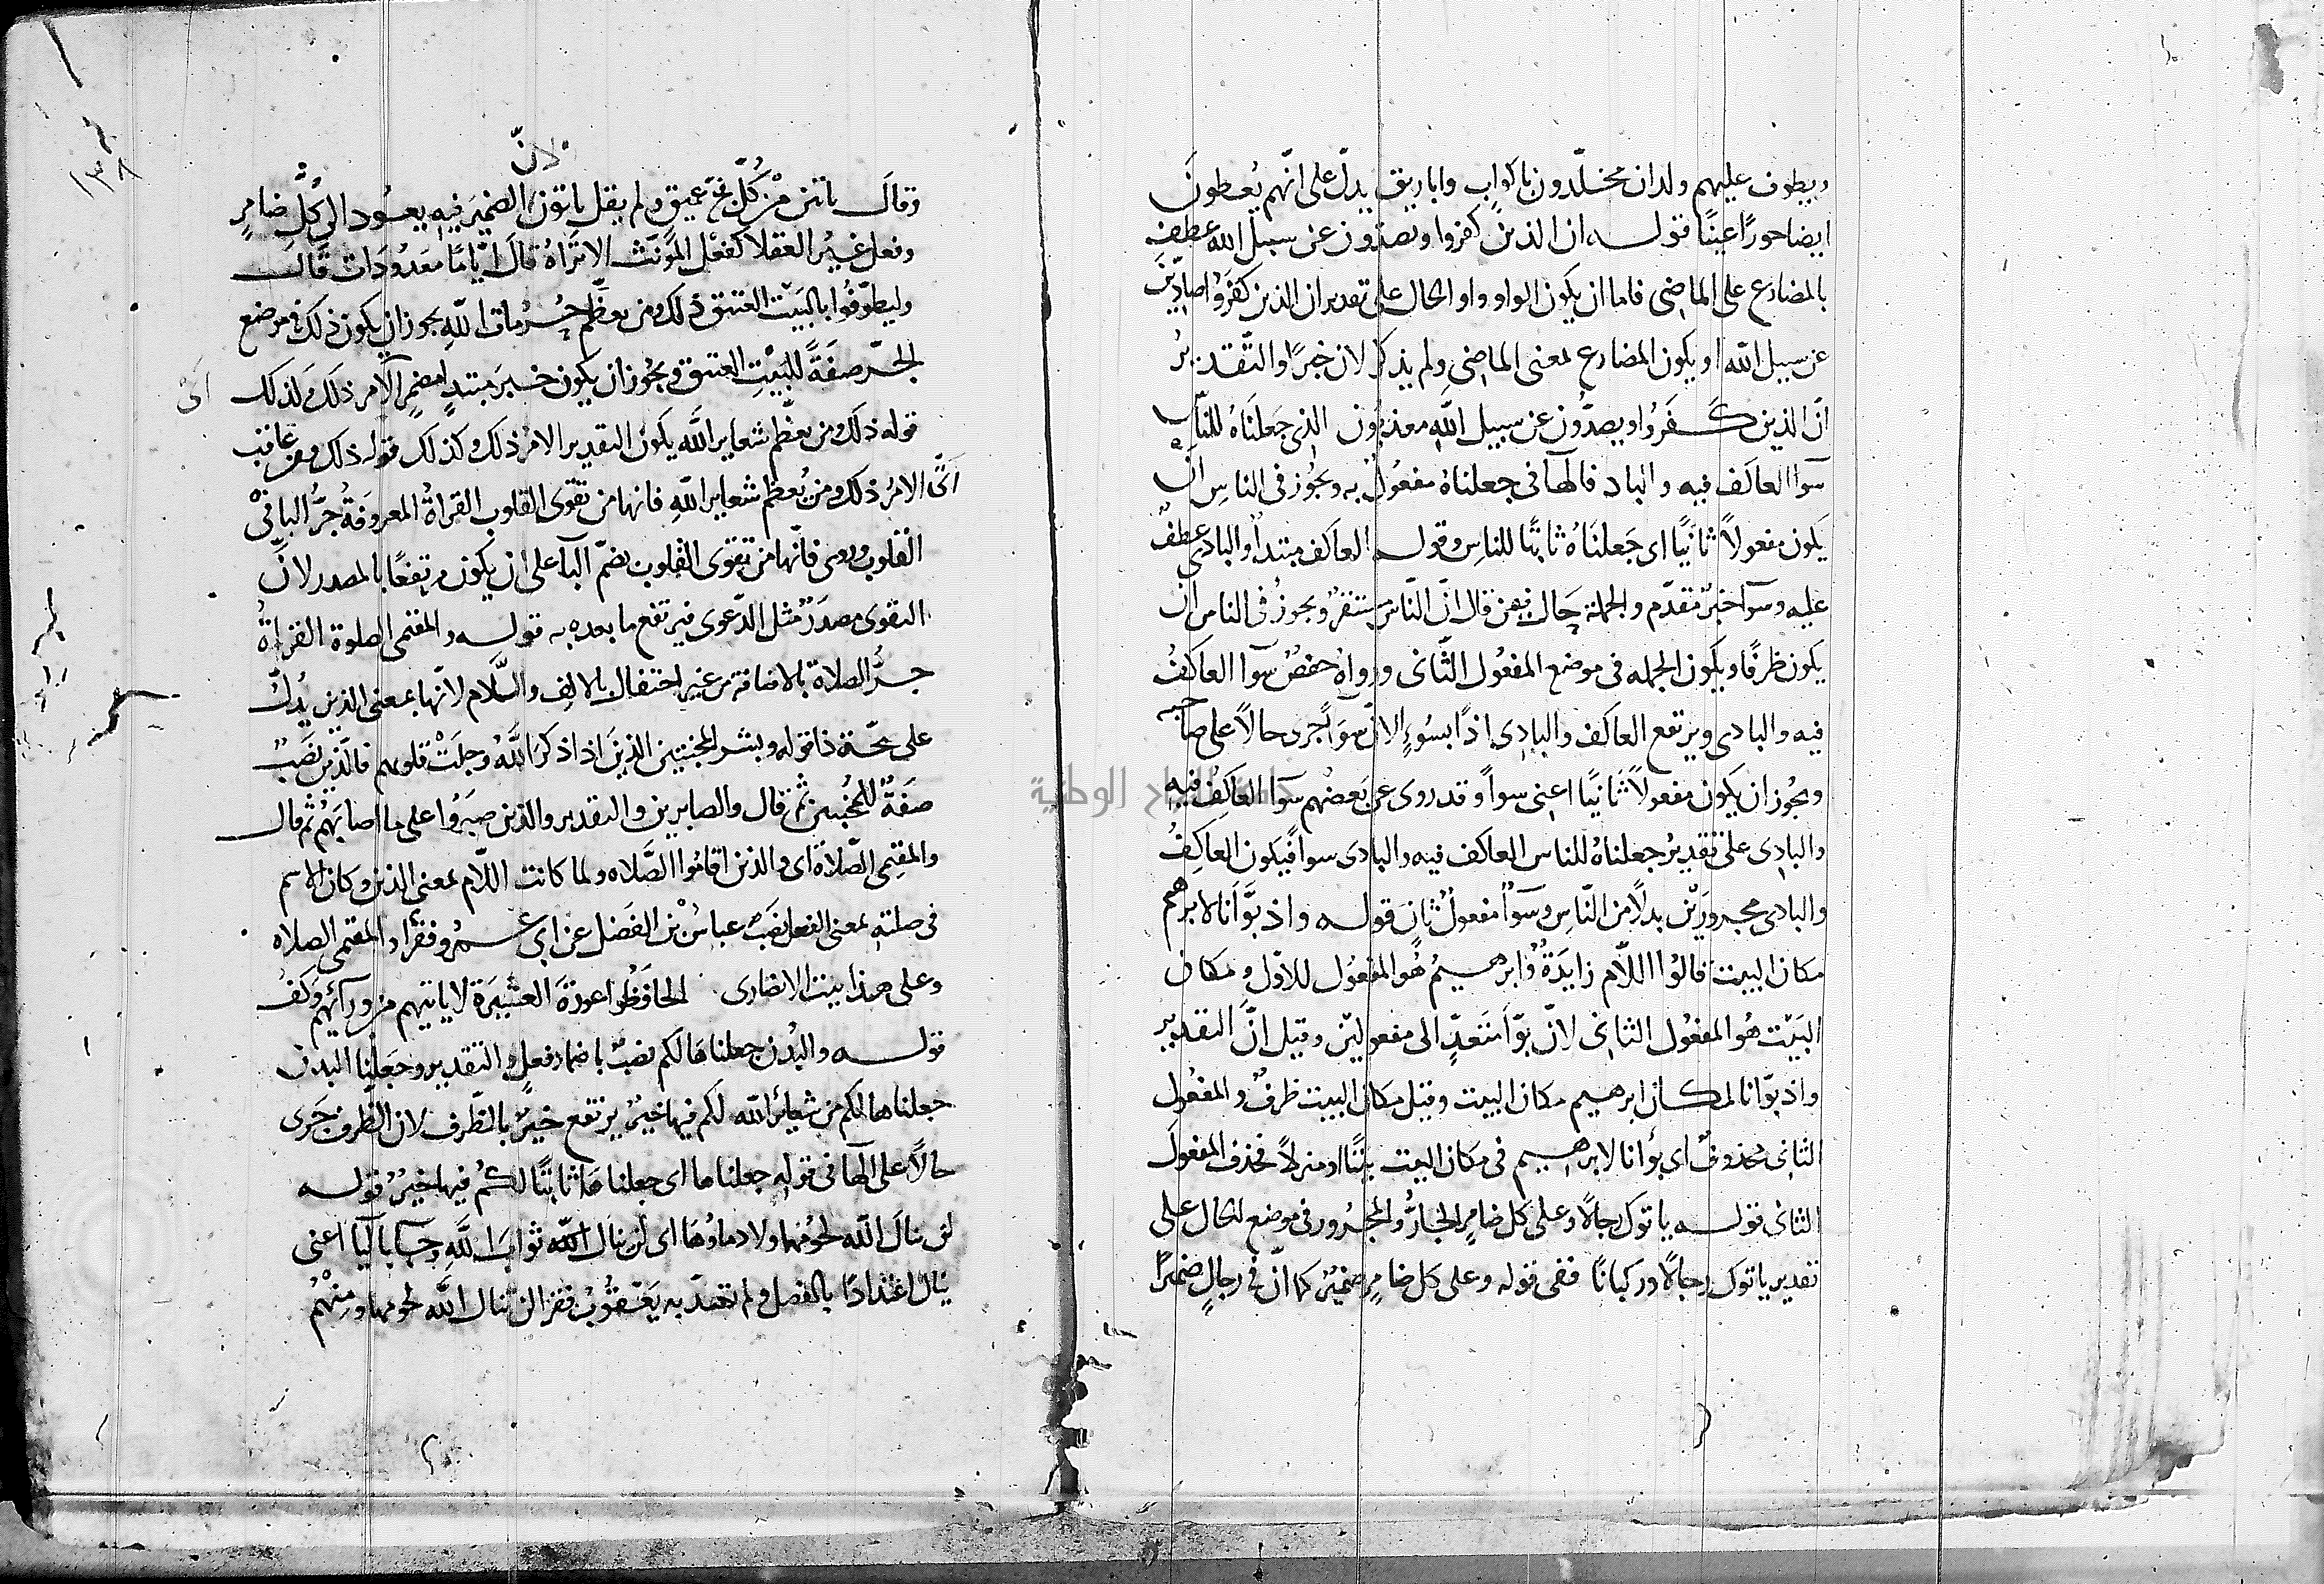 ويطوف عليهم ولدان مخلّدون باكواب واباريق يدلّ على انّهم يُعطونَ
ايضا حورًا عينًا قوله ان الذين كفروا ويصدّون عن سبيل الله عطف
بالمضارع على الماضى فاما ان يكون الواو واو الحال على تقدير ان الذين كفَرُوا صادّينَ
عن سبيل الله او يكون المضارع بمعنى الماضى ولم يذكر لان خبرًا والتّقديرُ
انّ الذين كفَرُوا ويصدُّون عن سبيل اللهِ معذبون الذى جَعلنَاهُ للنّاسِ
سوآ العاكف فيه والباد فالهآ فى جعلناهُ مفعُولٌ به ويجُوز فى الناسِ ان
يكون مفعولاً ثانيًا اى جَعلنَاهُ ثابتًا للناسِ وقوله العاكف مبتدأ والبادى عطفٌ
عليه وسوآ خبرٌ مقدّم والجملة حَال فيمن قال انّ النّاسَ مستقرٌ ويجوزُ فى الناس ان
يكون ظرفًا ويكون الجمله فى موضع المفعُول الثّانى ورواهُ حفصٌ سوآ العاكفُ
فيه والبادى ويرتفع العاكف والبادى اذًا بسُوءٍ الانّ سَوآ جرى حالاً على صاحبه
ويجُوز ان يكون مفعولاً ثَانيًا اعنى سوآ وقد روى عن بَعضهم سوآ العاكِف فيهِ
والبادِى على تقديرُ جعلناهُ للناس العاكف فيه والبادى سوآ فيكون العاكِفُ
والبادى مجرورَيْن بدلاً من النّاسِ وسَوآ مفعولٌ ثانٍ قوله واذ بوَّأنا لابرهيم
مكان البيت قالوُا اللّام زايدةٌ وابرهيمُ هُو المفعُول للاوّل ومكان
البَيْت هُو المفعُول الثانى لانّ بوّأ متَعدٍّ الى مفعوليْن وقيل انَّ التقدير
واذ بوّانا لمكان ابرهيم مكان البيت وقيل مكان البيت ظرفٌ والمفعُول
الثانى محذوفٌ اى بوأنا لابرهيم فى مكان البيت بيتًا او منزلاً فحذف المفعولَ
الثانى قوله ياتوك رجالاً وعلى كل ضامرٍ الجارُّ والمجرُور فى موضع الحال على
تقدير ياتوك رجالاً وركبانًا ففى قوله وعلى كل ضامرٍ ضميرٌ كما انّ فى رجالٍ ضميرًا
١٣٨
لانّ
وقالَ ياتين منْ كُلّ فجّ عميقٍ ولم يقل ياتون الضميرَ فيهِ يعُود الى كُلِّ ضامرٍ
وفعل غيرُ العقلا كفعْل المُؤنّث الا تَرَاهُ قالَ ايّامًا معَدُودَات قال
وليطوّفُوا بالبَيْت العتيق ذلك ومن يعظّم حُرُماتِ اللّهِ يجوز ان يكون ذلك فى موضع
الجّر صفَةً للبَيْتِ العتيق ويجُوز ان يكون خبرَ مبتدٍا مضمرٍ الامر ذلكَ ولذلك اىْ
قوله ذلك ومن يعظّم شعاير اللهَ يكون التقدير الامرُ ذلك وكذلك قوله ذلك ومن عاقب
اىّ الامرُ ذلك ومن يُعظّم شعاير اللّهِ فانها من تقوى القلوب القراةُ المعروفةُ جرُّ البا فى
القلوب وروى فانّها من تقوى القلوب بضمّ البآ على ان يكون مرتفعًا بالمصدر لانَّ
التقوى مصدَرٌ مثل الدّعوى فيرتفع ما بعده به قوله والمقيمى الصلوة القراةُ
جرُّ الصلاة بالاضافة من غير احتفال بالالف واللّام لانّها بمعنى الذين يدُلّ
على صحّة ذا قوله وبشر المخبتين الذينَ اذا ذكرَ اللهُ وجلَتْ قلوبهم فالّذين نصَبٌ
صفةٌ للمُخبتين ثمّ قال والصابرين والتقدير والذين صبَرُوا على ما اصابَهُم ثم قال
والمقِيمِى الصّلاة اى والذين اقامُوا الصَّلاه ولما كانت اللّام بمعنى الذين وكان الاسم
فى صلته بمعنى الفعل نصَبَ عباسُ بْن الفَضل عن ابى عمرو فقرأ والمقيمى الصلاه
وعلى هذا بيت الانصارى الحافظُوا عورَةَ العشيرَة لا ياتيهم من ورآئهم وكفُ
قوله والبُدْن جعلناها لكم نصبٌ باضمار فعلٍ والتقدير وجعَلْنا البدنَ
جعلناها لكم من شعائر الله لكم فيها خيرٌ يرتفع خيرٌ بالظّرف لان الظّرف جَرى
حالاً على الهآ فى قوله جعلناها اى جعلناها ثابتًا لكُم فيها خيرٌ قوله
لن ينالَ اللّه لحُومُها ولا دماؤهَا اى لن ينال اللهَ ثوابَ اللهِ وجآ باليآ اعنى
ينال اعتدادًا بالفصل ولم يعتدّ به يَعْقُوبُ فقرا لن تنال اللّه لحومها ومِنْهُمْ